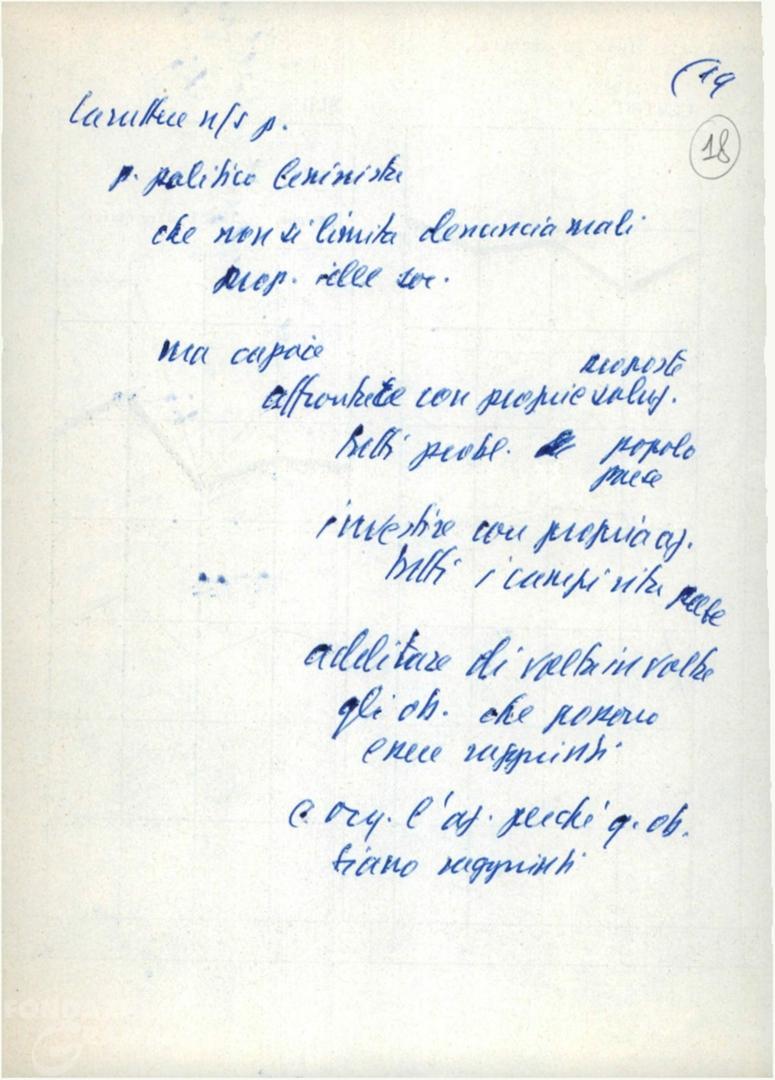 (19
18
Carattere n/s p.
p. politico leninista
che non si limita denuncia mali
prop. soc.
ma capace
proposte
affrontare con proprie soluz.
tutti probl. popolo
paese
investire con propria az.
tutti i campi vita
additare di volta in volta
gli ob. che possono
essere raggiunti
e org. l'az. perché q. ob.
siano raggiunti
FONDAZ